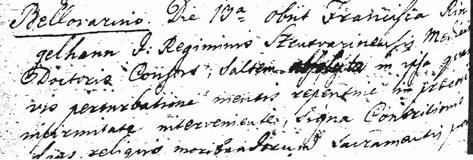 Bellovarino. Die 13a obiit Francisca Rin
gelhann I. Regiminis Strutvariensis Medici
Doctoris Conjux, Saltem in ipsa gra
vis perturbatione mentis repentine in extrem
infirmitate interveniente, signa Contritionis
reliquis moribundorum Sacramentis